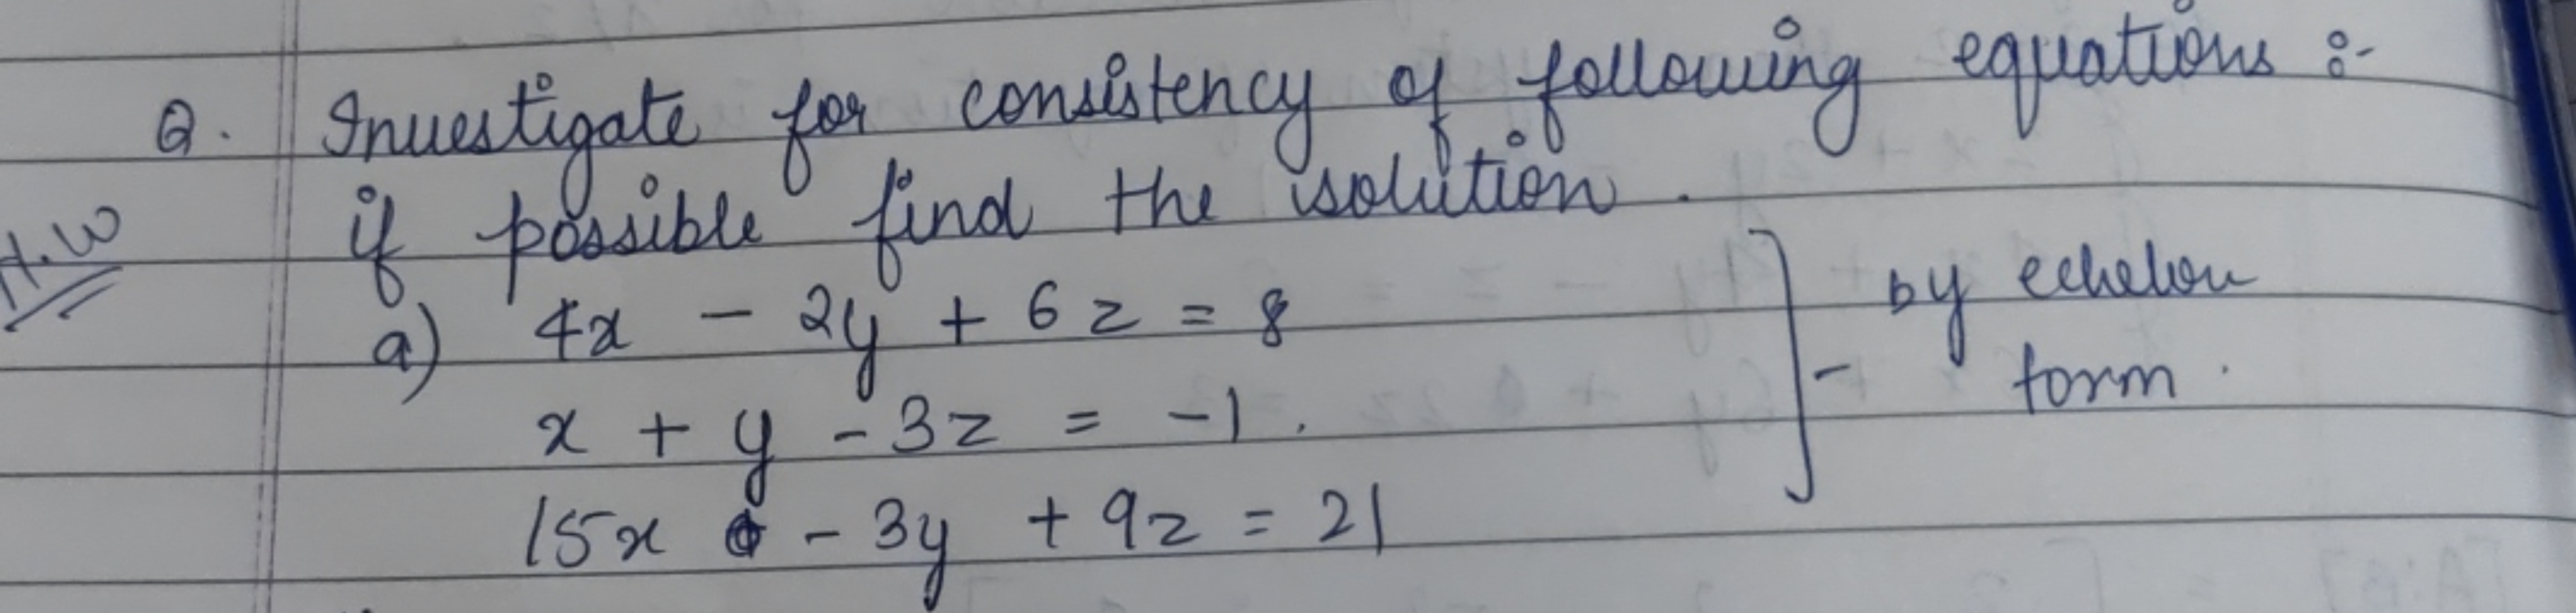 Q. Investigate for consistency of following equations :-
H.W if possible find the solution .
a) 4x - 2y + 6z = 8 ] - by echelon
x + y - 3z = -1 . form .
15x - 3y + 9z = 21